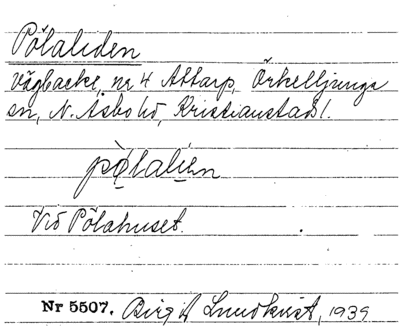 Pölaliden
Vägbacke, nr 4 Attarp, Örkelljunga
sn, N. Åsbo hd, Kristianstads l.
pö̀laliən
Vid Pölahuset.
Nr 5507. Birgit Lundkvist, 1939